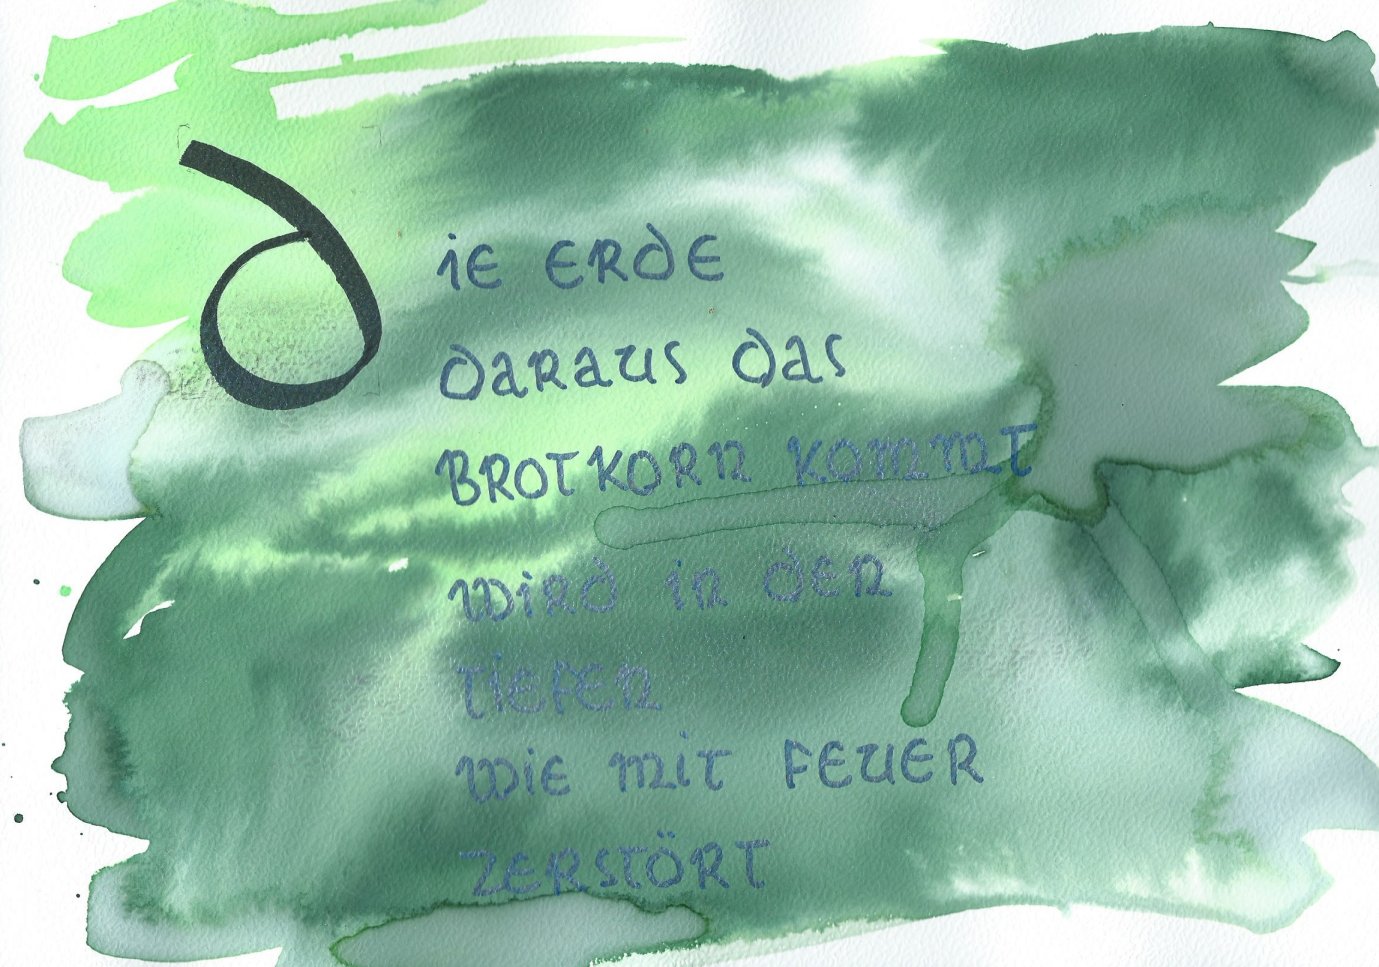 die Erde
daraus das
Brotkorn kommt
wird in den
Tiefen
wie mit Feuer
zerstört